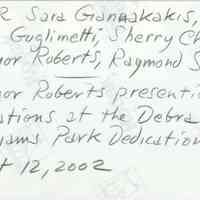 R Sara Giannakakis,
Guglimetti, Sherry Ch
nor Roberts, Raymond S
nor Roberts presenti
ations at the Debra
iams Park Dedication
t 12, 2002